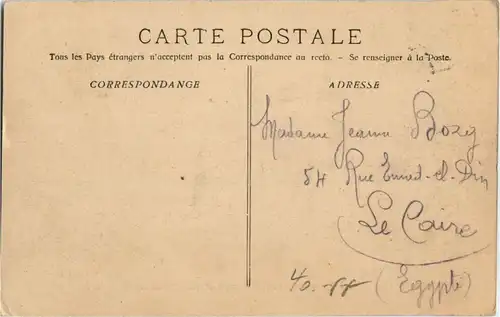 CARTE POSTALE
Tous les Pays étrangers n'acceptent pas la Correspondance au recto. - Se renseigner à la Poste.
CORRESPONDANCE
ADRESSE
Madame Jeanne Bozy
54 Rue Emad-el-Din
Le Caire
(Egypte)
40.-